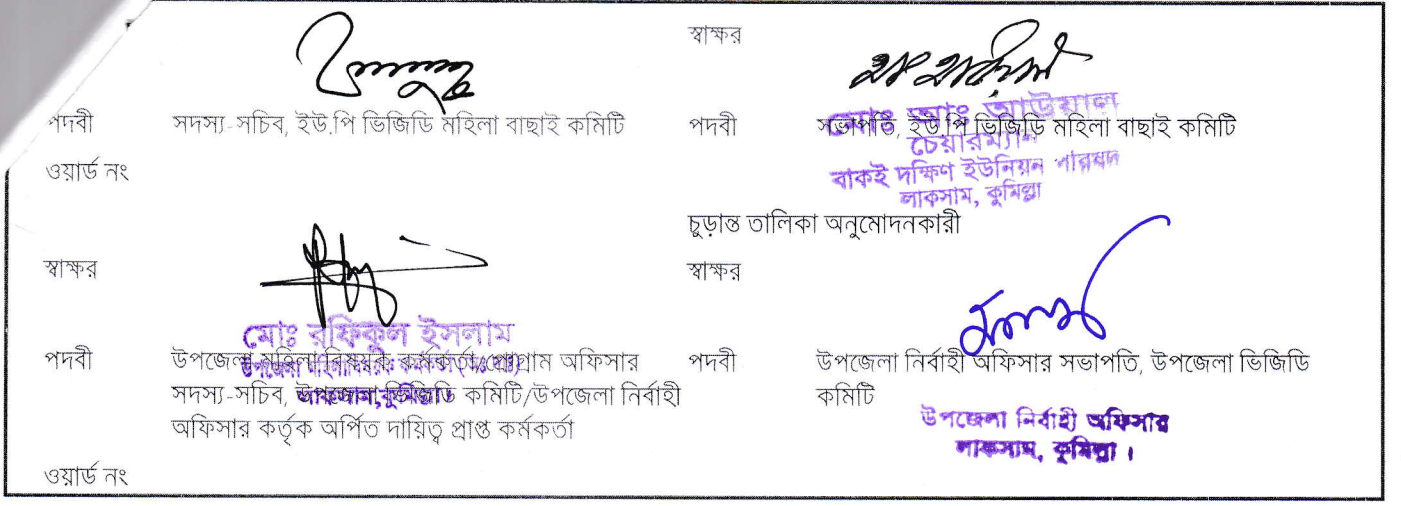 স্বাক্ষর
পদবী সদস্য-সচিব, ইউ.পি ভিজিডি মহিলা বাছাই কমিটি
ওয়ার্ড নং
পদবী সভাপতি, ইউ.পি ভিজিডি মহিলা বাছাই কমিটি
মোঃ আঃ আউয়াল
চেয়ারম্যান
বাকই দক্ষিণ ইউনিয়ন পরিষদ
লাকসাম, কুমিল্লা
চুড়ান্ত তালিকা অনুমোদনকারী
স্বাক্ষর
মোঃ রফিকুল ইসলাম
পদবী উপজেলা মহিলা বিষয়ক কর্মকর্তা/প্রোগ্রাম অফিসার
সদস্য-সচিব, উপজেলা ভিজিডি কমিটি/উপজেলা নির্বাহী
অফিসার কর্তৃক অর্পিত দায়িত্ব প্রাপ্ত কর্মকর্তা
লাকসাম, কুমিল্লা
ওয়ার্ড নং
স্বাক্ষর
পদবী উপজেলা নির্বাহী অফিসার সভাপতি, উপজেলা ভিজিডি
কমিটি
উপজেলা নির্বাহী অফিসার
লাকসাম, কুমিল্লা।